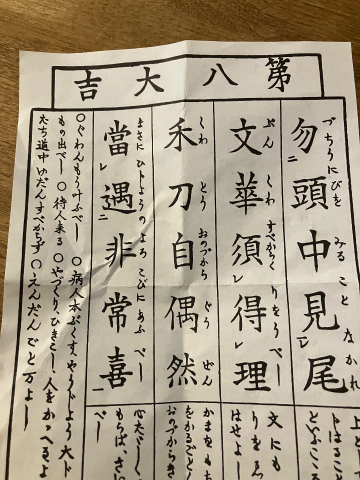 第八大吉
勿頭中見尾
づちうにびを みること なかれ
文華須得理
ぶん くわ すべからく りをうべし
禾刀自偶然
くわ とう おのづから ぐう ぜん
當遇非常喜
まさに ひじょうのよろこびにあふべし
文にも
はせよし
かまをもち
をかるごとく
おのづからき
べし
○ぐわんもう叶ふべし ○病人本ぶくすやうじよう大
もの出べし ○待人来る ○やづくりひきこし人をかゝへるよ
たち道中ゆだんすべからず ○えんだんごと万よし